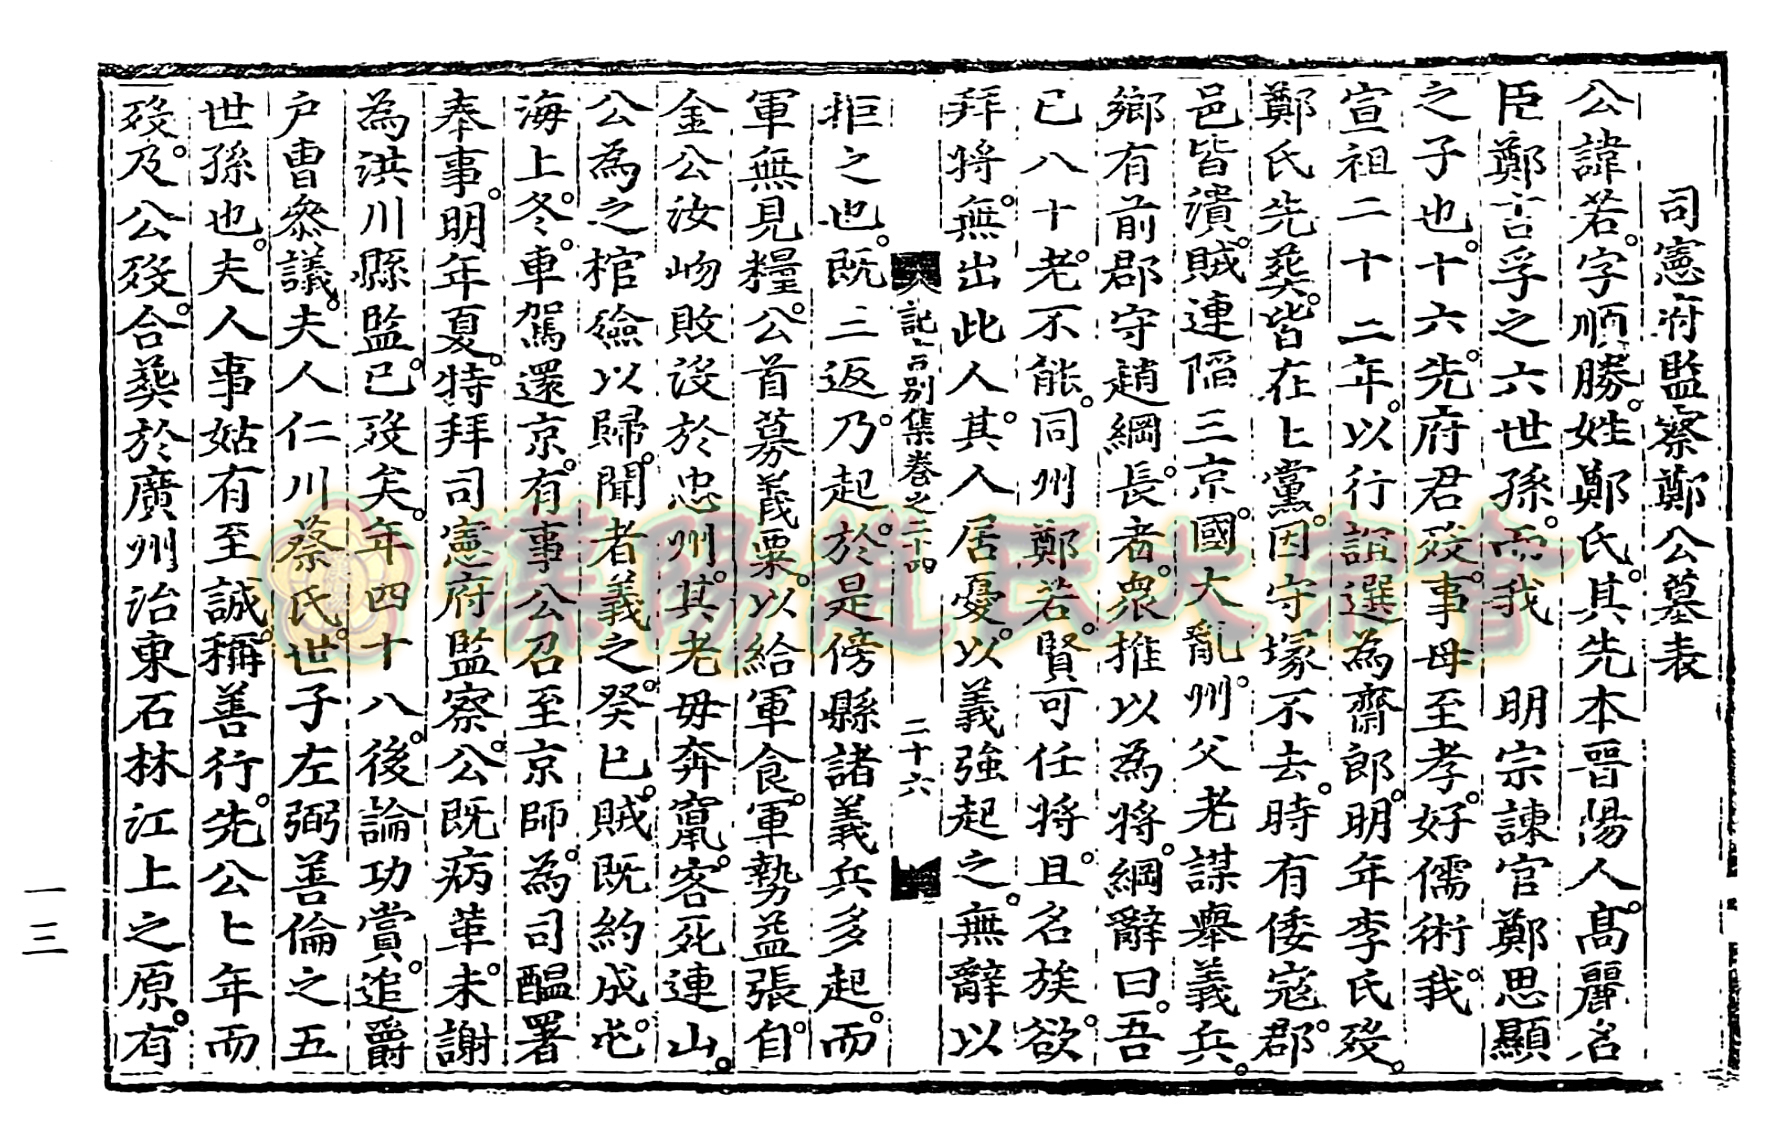 司憲府監察鄭公墓表
公諱若。字順勝。姓鄭氏。其先本晉陽人。高麗名
臣鄭言孚之六世孫。而我 明宗諫官鄭思顯
之子也。十六。先府君歿。事母至孝。好儒術。我
宣祖二十二年。以行誼選為齋郎。明年李氏歿。
鄭氏先葬。皆在上黨。因守塚不去。時有倭寇。郡
邑皆潰。賊連陷三京。國大亂。州父老謀擧義兵。
鄉有前郡守趙綱長。者。衆推以為將。綱辭曰。吾
已八十老。不能。同州鄭若。賢可任將。且名族。欲
拜將。無出此人。其入居憂。以義強起之。無辭以
記言別集卷之二十四 二十六
拒之也。既三返。乃起。於是傍縣諸義兵多起。而
軍無見糧。公首募義粟。以給軍食。軍勢益張。自
金公汝岉敗沒於忠州。其老母奔竄。客死連山。
公為之棺斂以歸。聞者義之。癸巳。賊既約成。屯
海上。冬。車駕還京。有事公召至京師。為司醞署
奉事。明年夏。特拜司憲府監察。公既病革。未謝
為洪川縣監。已歿矣。年四十八。後論功賞。追爵
戶曹參議。夫人仁川蔡氏。世子左弼善倫之五
世孫也。夫人事姑有至誠。稱善行。先公七年而
歿。及公歿。合葬於廣州治東石林江上之原。有
一三
漢陽趙氏大宗會